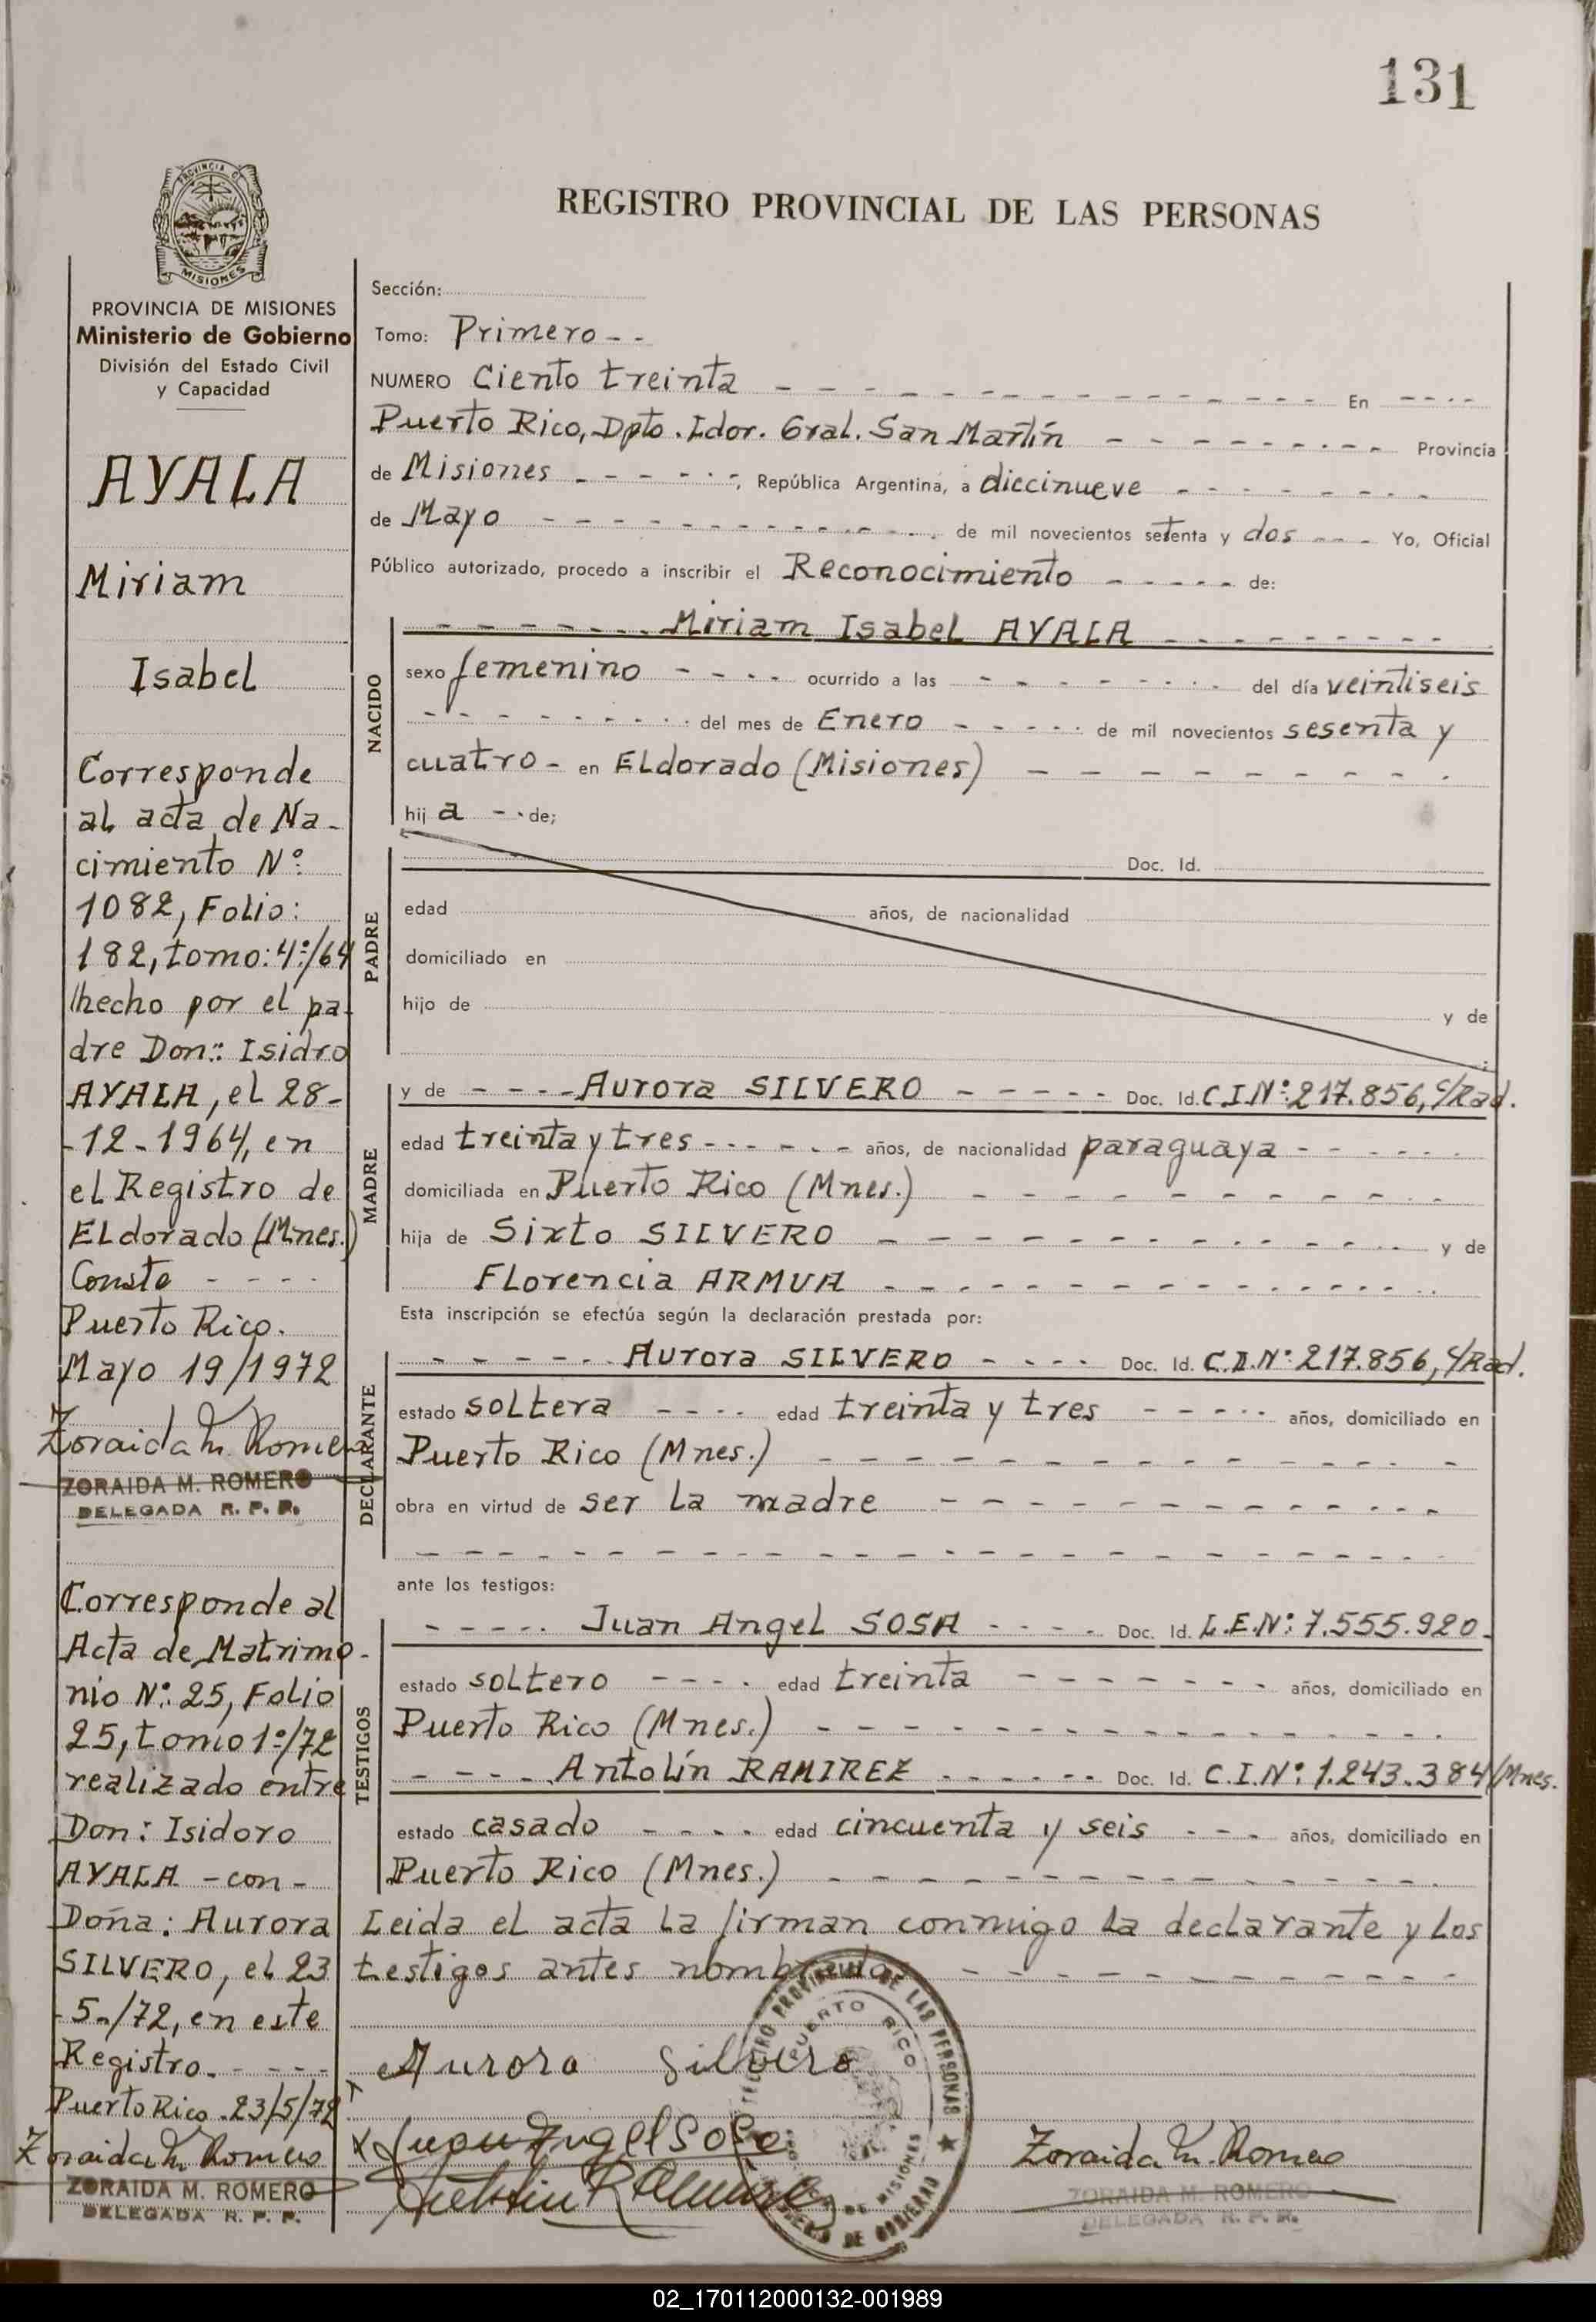 131
PROVINCIA DE
MISIONES
PROVINCIA DE MISIONES
Ministerio de Gobierno
División del Estado Civil
y Capacidad
AYALA
Miriam
Isabel
Corresponde
al acta de Na-
cimiento Nº
1082, Folio:
182, tomo: 4º/64
hecho por el pa-
dre Don: Isidro
AYALA, el 28-
-12-1964, en
el Registro de
Eldorado (Mnes.)
Conste - - - -
Puerto Rico.
Mayo 19/1972
Zoraida M. Romero
ZORAIDA M. ROMERO
DELEGADA R. P. P.
Corresponde al
Acta de Matrimo-
nio Nº: 25, Folio
25, tomo 1º/72
realizado entre
Don: Isidoro
AYALA - con -
Doña: Aurora
SILVERO, el 23
-5-/72, en este
Registro. - - - -
Puerto Rico. 23/5/72
Zoraida M. Romero
ZORAIDA M. ROMERO
DELEGADA R. P. P.
REGISTRO PROVINCIAL DE LAS PERSONAS
Sección:
Tomo: Primero - -
NUMERO Ciento treinta - - - En - - - -
Puerto Rico, Dpto. Ldor. Gral. San Martín - - - Provincia
de Misiones - - - , República Argentina, a diecinueve - - -
de Mayo - - - de mil novecientos setenta y dos - - - Yo, Oficial
Público autorizado, procedo a inscribir el Reconocimiento - - - de:
NACIDO
- - - Miriam Isabel AYALA - - -
sexo femenino - - - ocurrido a las - - - del día veintiseis
- - - del mes de Enero - - - de mil novecientos sesenta y
cuatro - en Eldorado (Misiones) - - -
hij a - - de;
PADRE
Doc. Id.
edad años, de nacionalidad
domiciliado en
hijo de y de
MADRE
y de - - - Aurora SILVERO - - - Doc. Id. C.I.Nº: 217.856, c/Rad.
edad treinta y tres - - - años, de nacionalidad paraguaya - - -
domiciliada en Puerto Rico (Mnes.) - - -
hija de Sixto SILVERO - - - y de
Florencia ARMUA - - -
Esta inscripción se efectúa según la declaración prestada por:
DECLARANTE
- - - Aurora SILVERO - - - Doc. Id. C.I.Nº: 217.856, c/Rad.
estado soltera - - - edad treinta y tres - - - años, domiciliado en
Puerto Rico (Mnes.) - - -
obra en virtud de ser la madre - - -
ante los testigos:
TESTIGOS
- - - Juan Angel SOSA - - - Doc. Id. L.E.Nº: 7.555.920-
estado soltero - - - edad treinta - - - años, domiciliado en
Puerto Rico (Mnes.) - - -
- - - Antolín RAMIREZ - - - Doc. Id. C.I.Nº: 1.243.384/Mnes.
estado casado - - - edad cincuenta y seis - - - años, domiciliado en
Puerto Rico (Mnes.) - - -
Leida el acta la firman conmigo la declarante y los
testigos antes nombrados - - -
Aurora Silvero
Juan Angel Sosa
Zoraida M. Romero
ZORAIDA M. ROMERO
DELEGADA R. P. P.
REGISTRO PROVINCIAL DE LAS PERSONAS
PUERTO RICO
02_170112000132-001989